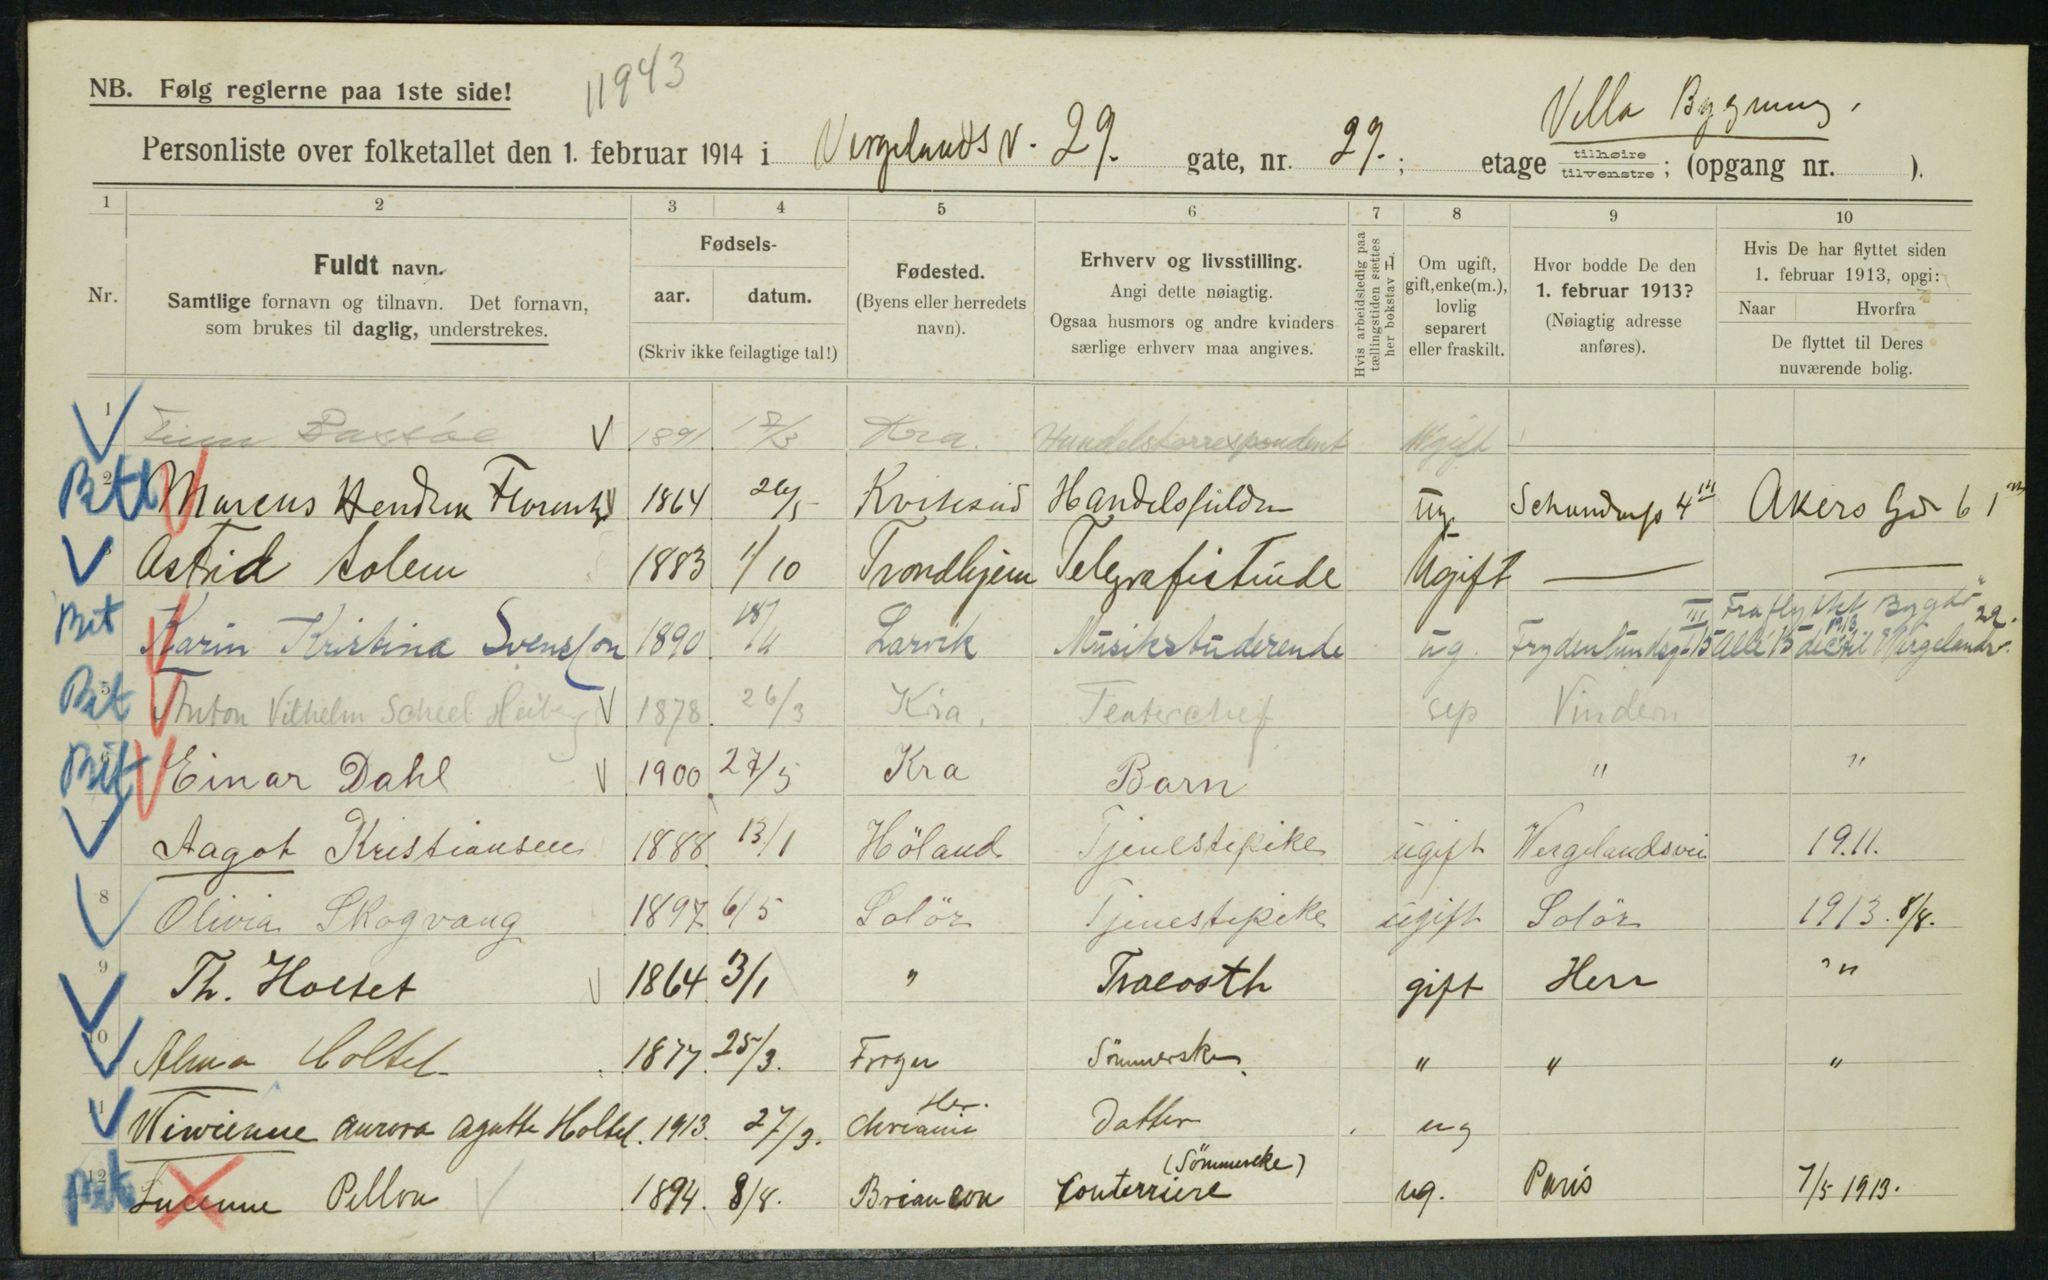 11943
NB. Følg reglerne paa 1ste side!
Villa Bygning.
Personliste over folketallet den 1. februar 1914 i Vergelands v. 29. gate, nr. 29.; etage tilhøire tilvenstre; (opgang nr. ).
1 2 3 4 5 6 7 8 9 10
Nr.
Fuldt navn.
Samtlige fornavn og tilnavn. Det fornavn,
som brukes til daglig, understrekes.
Fødsels-
aar. datum.
(Skriv ikke feilagtige tal!)
Fødested.
(Byens eller herredets
navn).
Erhverv og livsstilling.
Angi dette nøiagtig.
Ogsaa husmors og andre kvinders
særlige erhverv maa angives.
Hvis arbeidsledig paa
tællingstiden sættes
her bokstav L
Om ugift,
gift, enke(m.),
lovlig
separert
eller fraskilt.
Hvor bodde De den
1. februar 1913?
(Nøiagtig adresse
anføres).
Hvis De har flyttet siden
1. februar 1913, opgi:
Naar Hvorfra
De flyttet til Deres
nuværende bolig.
1 Finn 1891 17/3 Kra. Handelskorrespondent Ugift
Bet 2 Marcus Hendrik 1864 26/5 Kviteseid ug. 4 III Akers 61
Astrid Solem 1883 1/10 Trondhjem Telegrafistinde Ugift — —
Fraflyttet Bygdö
Bet Karin Kristina Svensson 1890 Larvik Musikstuderende ug. Frydenlundsg. 15 III Allé 15 dec 1913 til Wergelandsv. 29.
Bet 5 Anton Vilhelm Scheel Heiberg 1878 26/3 Kra. Teaterchef sep Vindern
Bet 6 Einar Dahl 1900 27/5 Kra Barn " "
7 Aagot Kristiansen 1888 13/1 Höland Tjenestepike ugift Wergelandsvei 1911.
8 Olivia Skogvang 1897 6/5 Solör Tjenestepike ugift Solör 1913. 8/8.
9 Th. Holtet 1864 3/1 " gift Herr "
10 Alma Holtet 1877 25/3. Sömmerske " " "
11 Aurora Agatte Holtet. 1913. 27/3. Her. Datter ug
Bet 12 Pellon 1894. 8/8. Briancon Couterriere (Sömmerske) ug. Paris 7/5 1913.